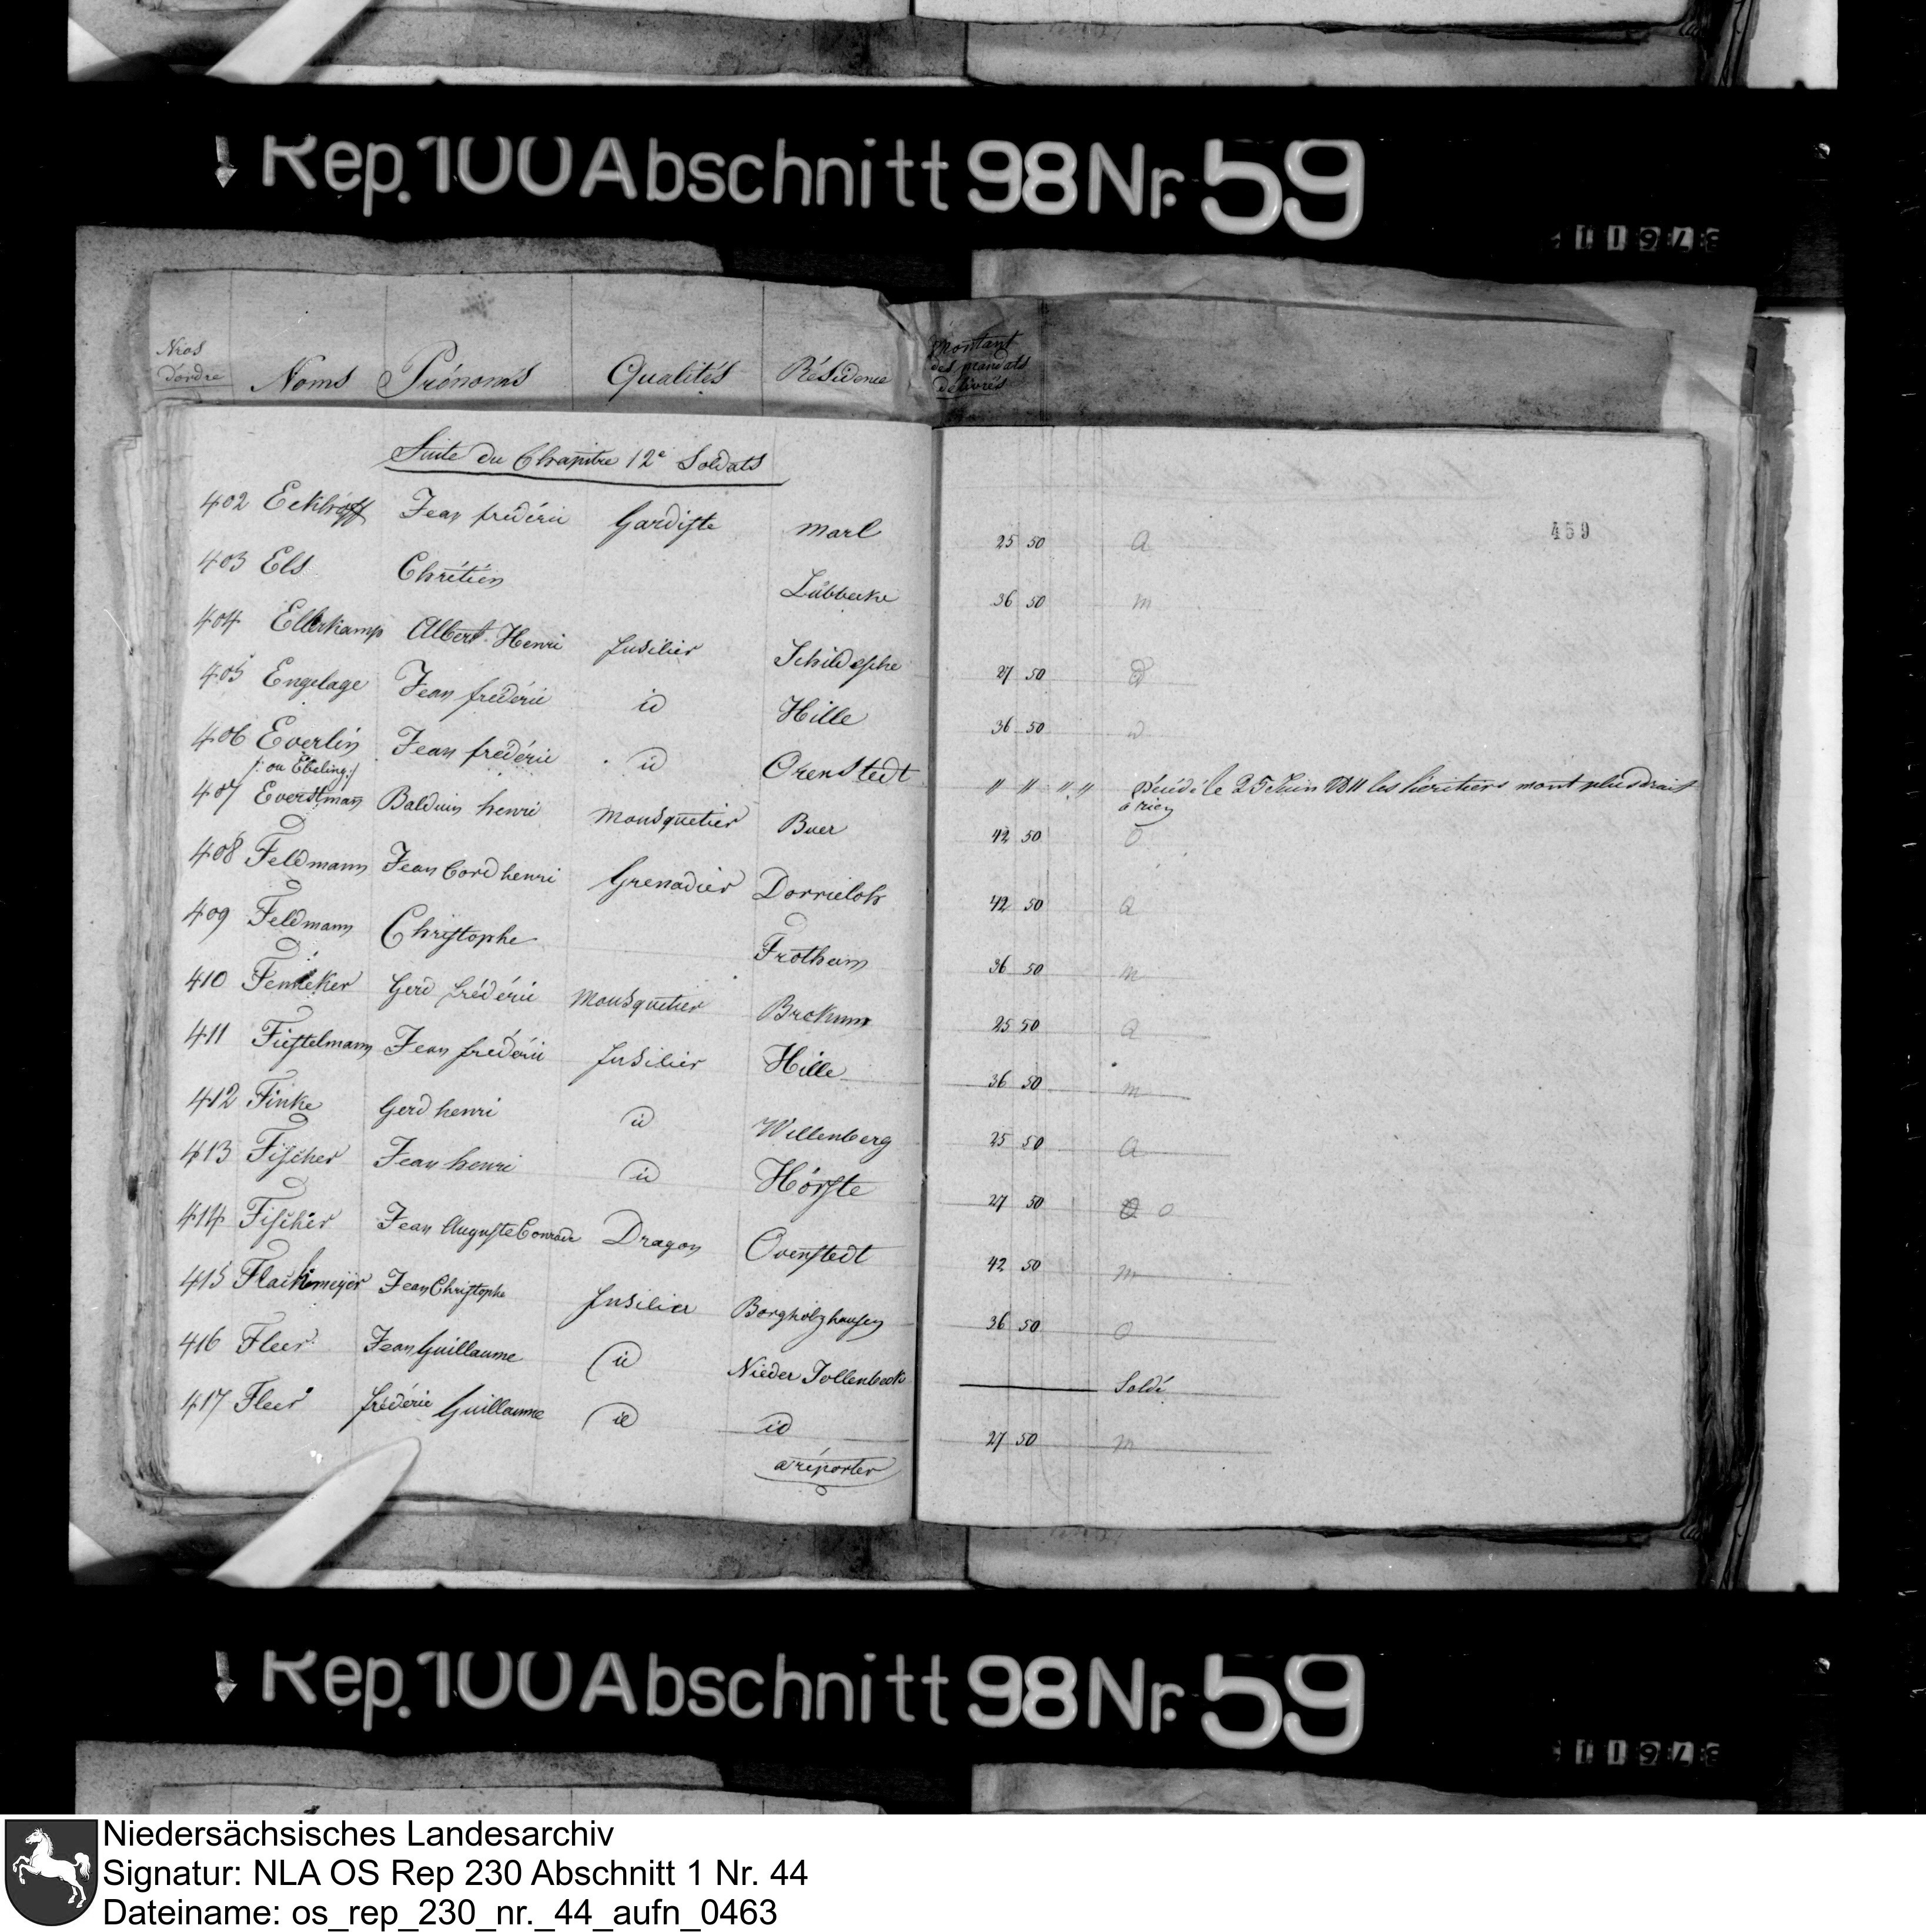 Rep. 100 Abschnitt 98 Nr. 59
Nros d'ordre Noms Prénoms Qualités Résidence Montant des mandats délivrés
Suite du Chapitre 12e Soldats
469
402 Eckhoff Jean frédéric Gardiste Marl 25 50 a
403 Els Chrétien Lübbecke 36 50 m
404 Ellerkamp Albert Henri fusilier Schildesche 27 50
405 Engelage Jean frédéric id Hille 36 50
406 Everlin Jean frédéric id Ovenstedt " " " " Décédé le 25 Juin 1811 les héritiers n'ont plus droit
/: ou Ebeling :/ à rien
407 Everstmann Balduin henri Mousquetier Buer 42 50 O
408 Feldmann Jean Cord henri Grenadier Dorrieloh 42 50 a
409 Feldmann Christophe Frotheim 36 50 m
410 Genreker Gerd frédéric Mousquetier Brokum 25 50 a
411 Fiestelmann Jean frédéric fusilier Hille 36 50 m
412 Finke Gerd henri id Willenberg 25 50 a
413 Fischer Jean henri id Hörste 27 50 O
414 Fischer Jean Auguste Conrade Dragon Ovenstedt 42 50 m
415 Flachmeyer Jean Christophe fusilier Borgholzhausen 36 50 O
416 Fleer Jean Guillaume id Nieder Jollenbeck Soldé
417 Fleer frédéric Guillaume id id 27 50 m
a réporter
Rep. 100 Abschnitt 98 Nr. 59
Niedersächsisches Landesarchiv
Signatur: NLA OS Rep 230 Abschnitt 1 Nr. 44
Dateiname: os_rep_230_nr._44_aufn_0463